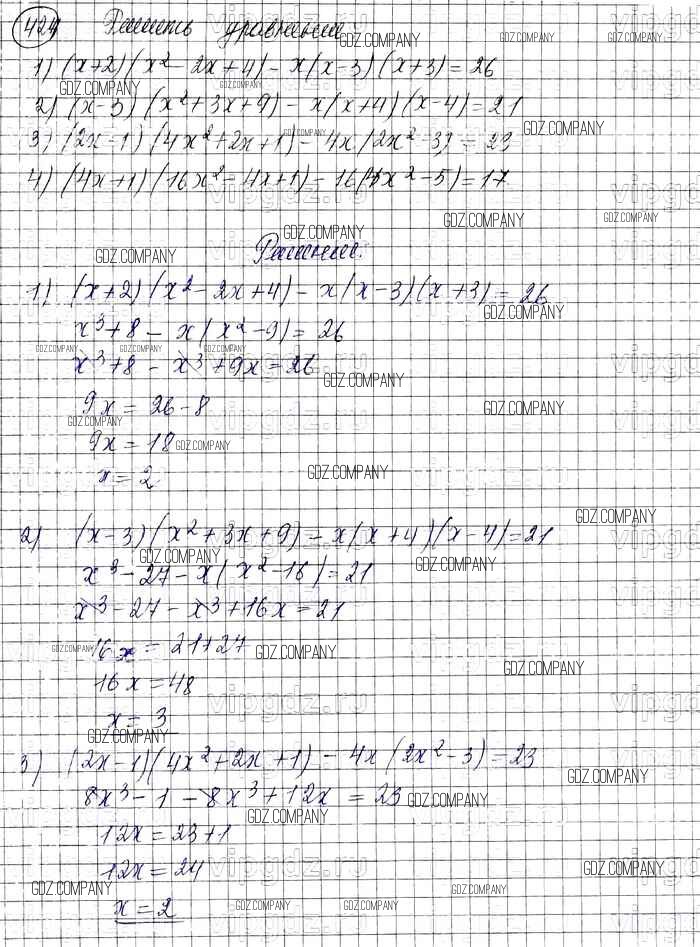 424 Решить уравнения
1) (x+2)(x²-2x+4)-x(x-3)(x+3)=26
2) (x-3)(x²+3x+9)-x(x+4)(x-4)=21
3) (2x-1)(4x²+2x+1)-4x(2x²-3)=23
4) (4x+1)(16x²-4x+1)-16x(4x²-5)=17
Решение:
1) (x+2)(x²-2x+4)-x(x-3)(x+3)=26
x³+8-x(x²-9)=26
x³+8-x³+9x=26
9x=26-8
9x=18
x=2
2) (x-3)(x²+3x+9)-x(x+4)(x-4)=21
x³-27-x(x²-16)=21
x³-27-x³+16x=21
16x=21+27
16x=48
x=3
3) (2x-1)(4x²+2x+1)-4x(2x²-3)=23
8x³-1-8x³+12x=23
12x=23+1
12x=24
x=2
GDZ.COMPANY
vipgdz.ru